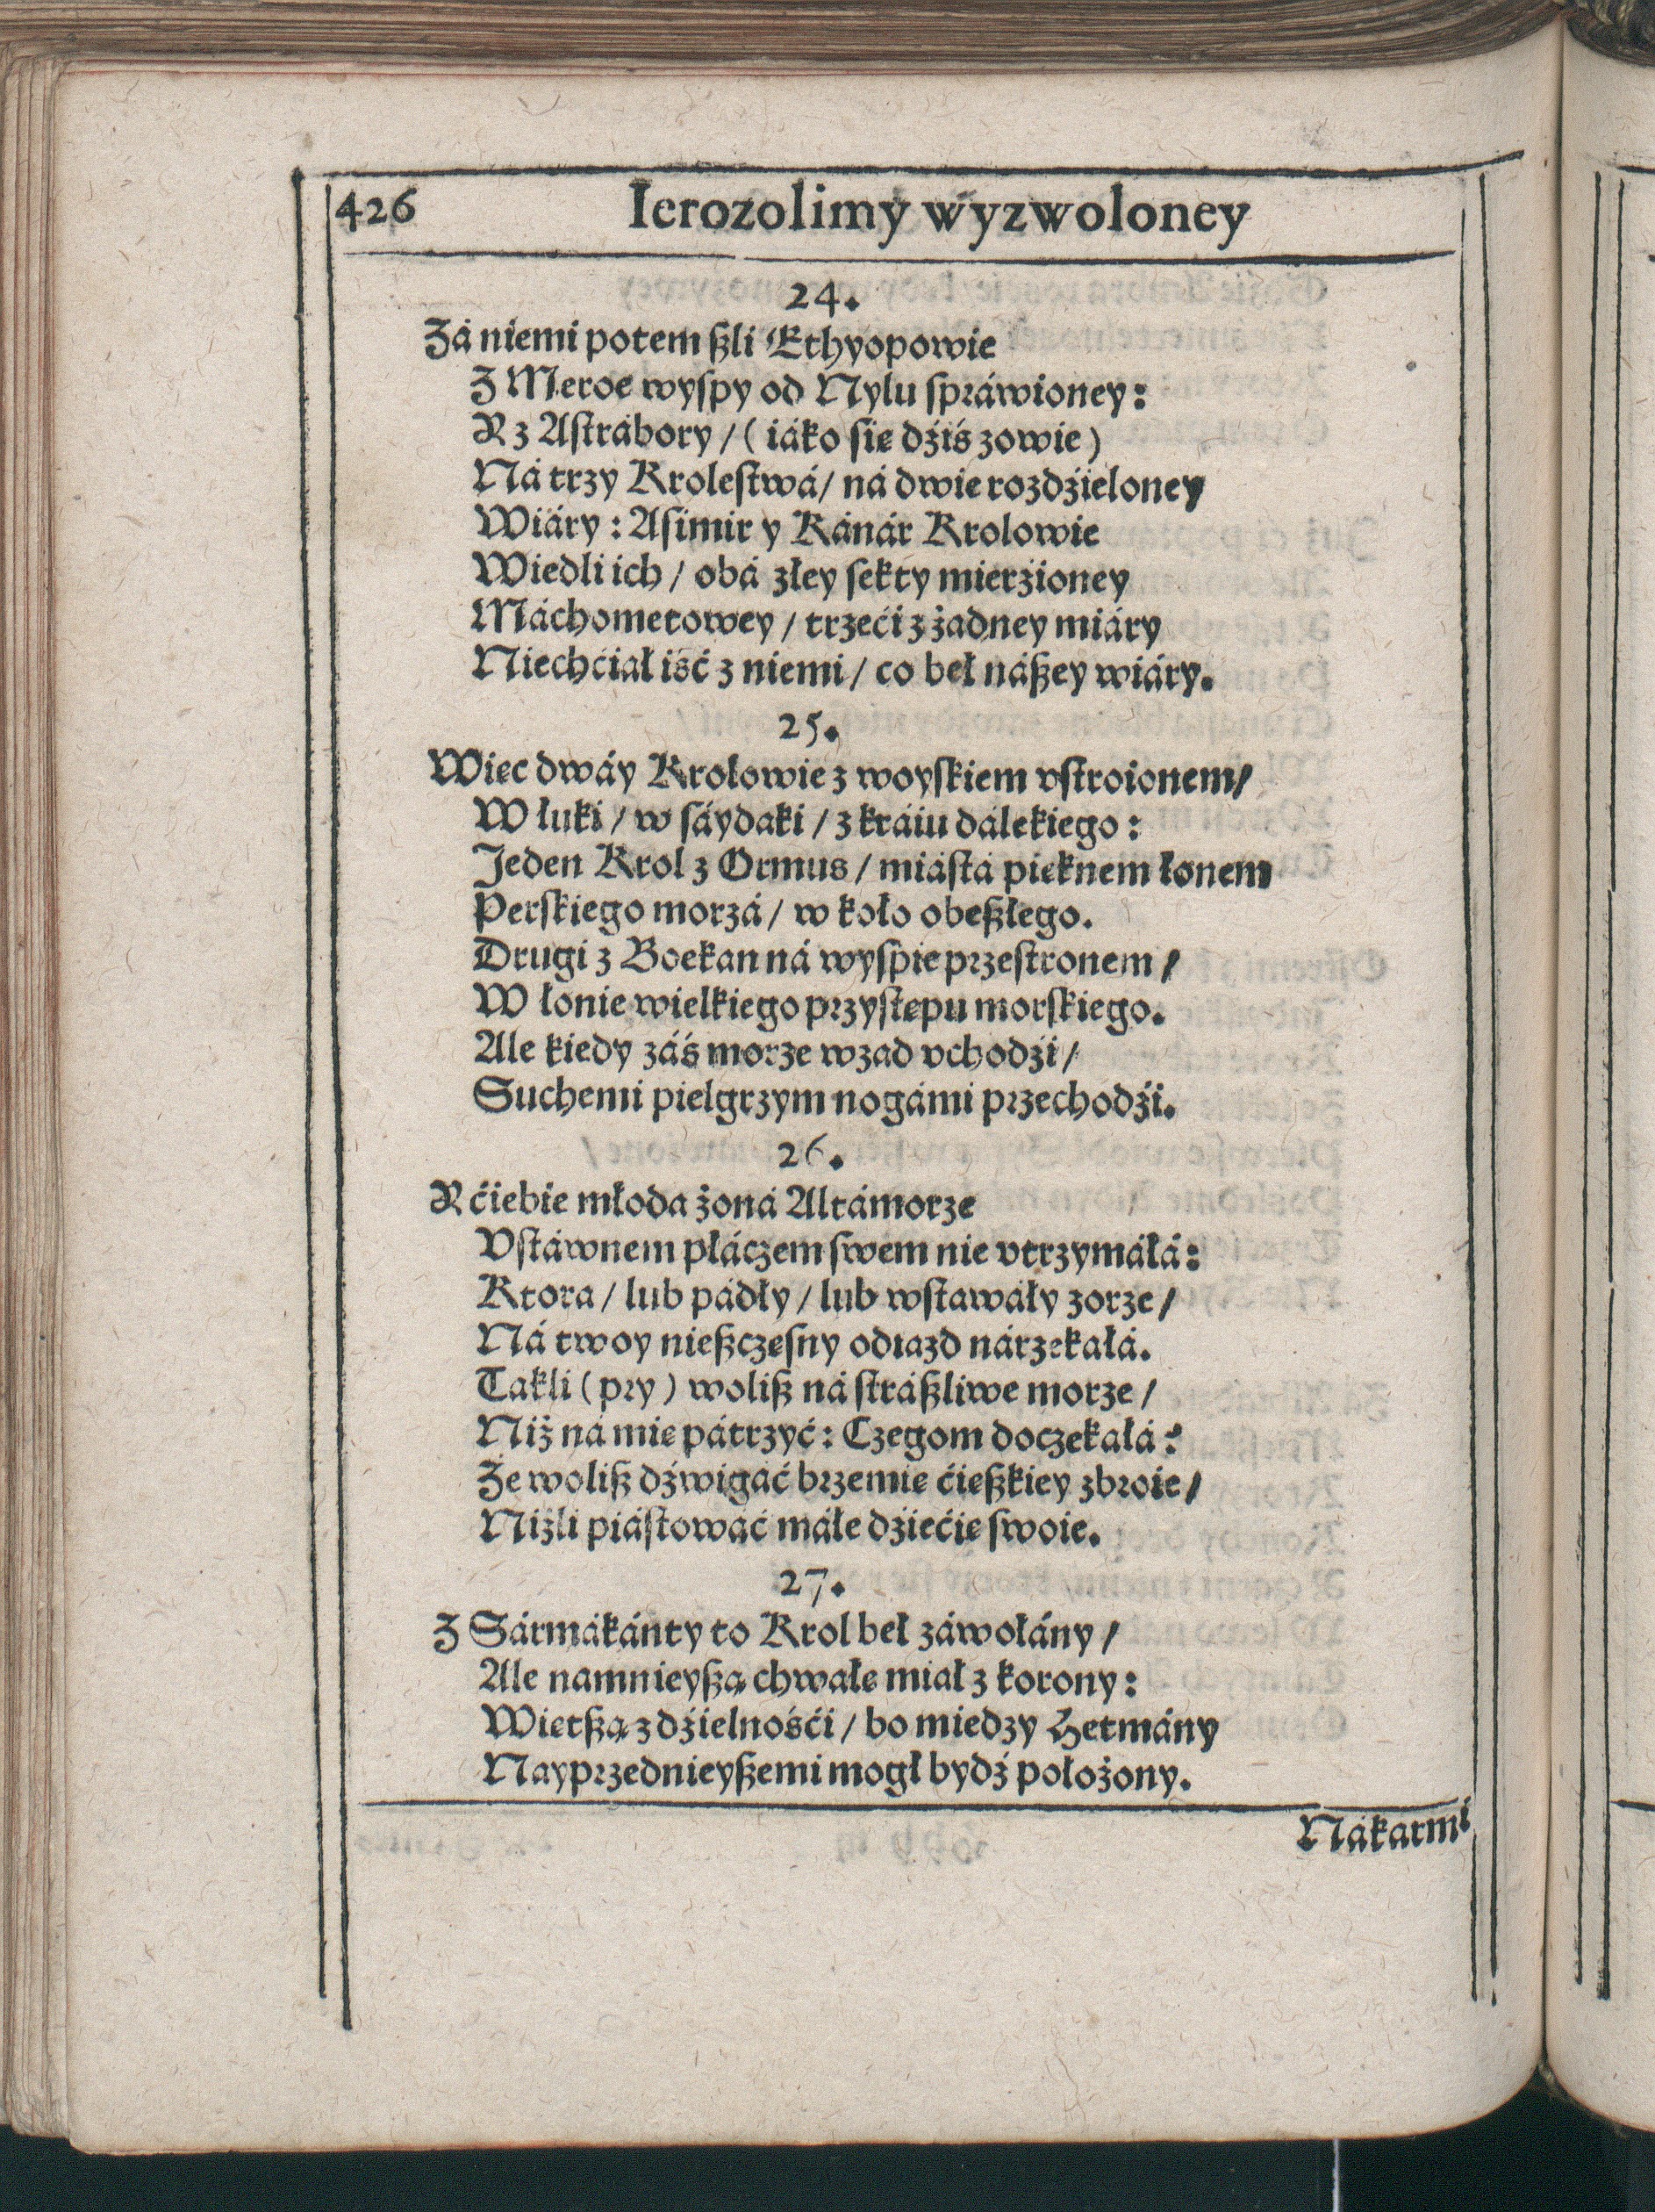 426 Ierozolimy wyzwoloney
24.
Zá niemi potem ßli Ethyopowie
Z Meroe wyſpy od Nylu ſpráwioney:
Y z Aſtrábory / ( iáko ſie dźiś zowie )
Ná trzy Kroleſtwá / ná dwie rozdźieloney
Wiáry : Aſimir y Kánár Krolowie
Wiedli ich / obá złey ſekty mierźioney
Máchometowey / trzeći z żadney miáry
Niechćiał iść z niemi / co beł náßey wiáry.
25.
Więc dwáy Krolowie z woyſkiem vſtroionem /
W łuki / w ſáydaki / z kráiu dálekiego :
Jeden Krol z Ormus / miáſtá pięknem łonem
Perſkiego morzá / w koło obeßłego.
Drugi z Boekan ná wyſpie przeſtronem /
W łonie wielkiego przyſtępu morſkiego.
Ale kiedy záś morze wzad vchodźi /
Suchemi pielgrzym nogámi przechodźi.
26.
Y ćiebie młoda żoná Altámorze
Vſtáwnem płáczem ſwem nie vtrzymáłá :
Ktora / lub pádły / lub wſtawáły zorze /
Ná twoy nießczęſny odiazd nárzekałá.
Takli ( pry ) woliß ná ſtráßliwe morze /
Niż ná mię pátrzyć : Czegom doczekáłá ?
Że woliß dźwigáć brzemię ćięßkiey zbroie /
Niżli piáſtowáć máłe dźiećię ſwoie.
27.
Z Sármákánty to Krol beł záwołány /
Ale namnieyßą chwałę miał z korony :
Więtßą z dźielnośći / bo miedzy Hetmány
Nayprzednieyßemi mogł bydź położony.
Nákarmi